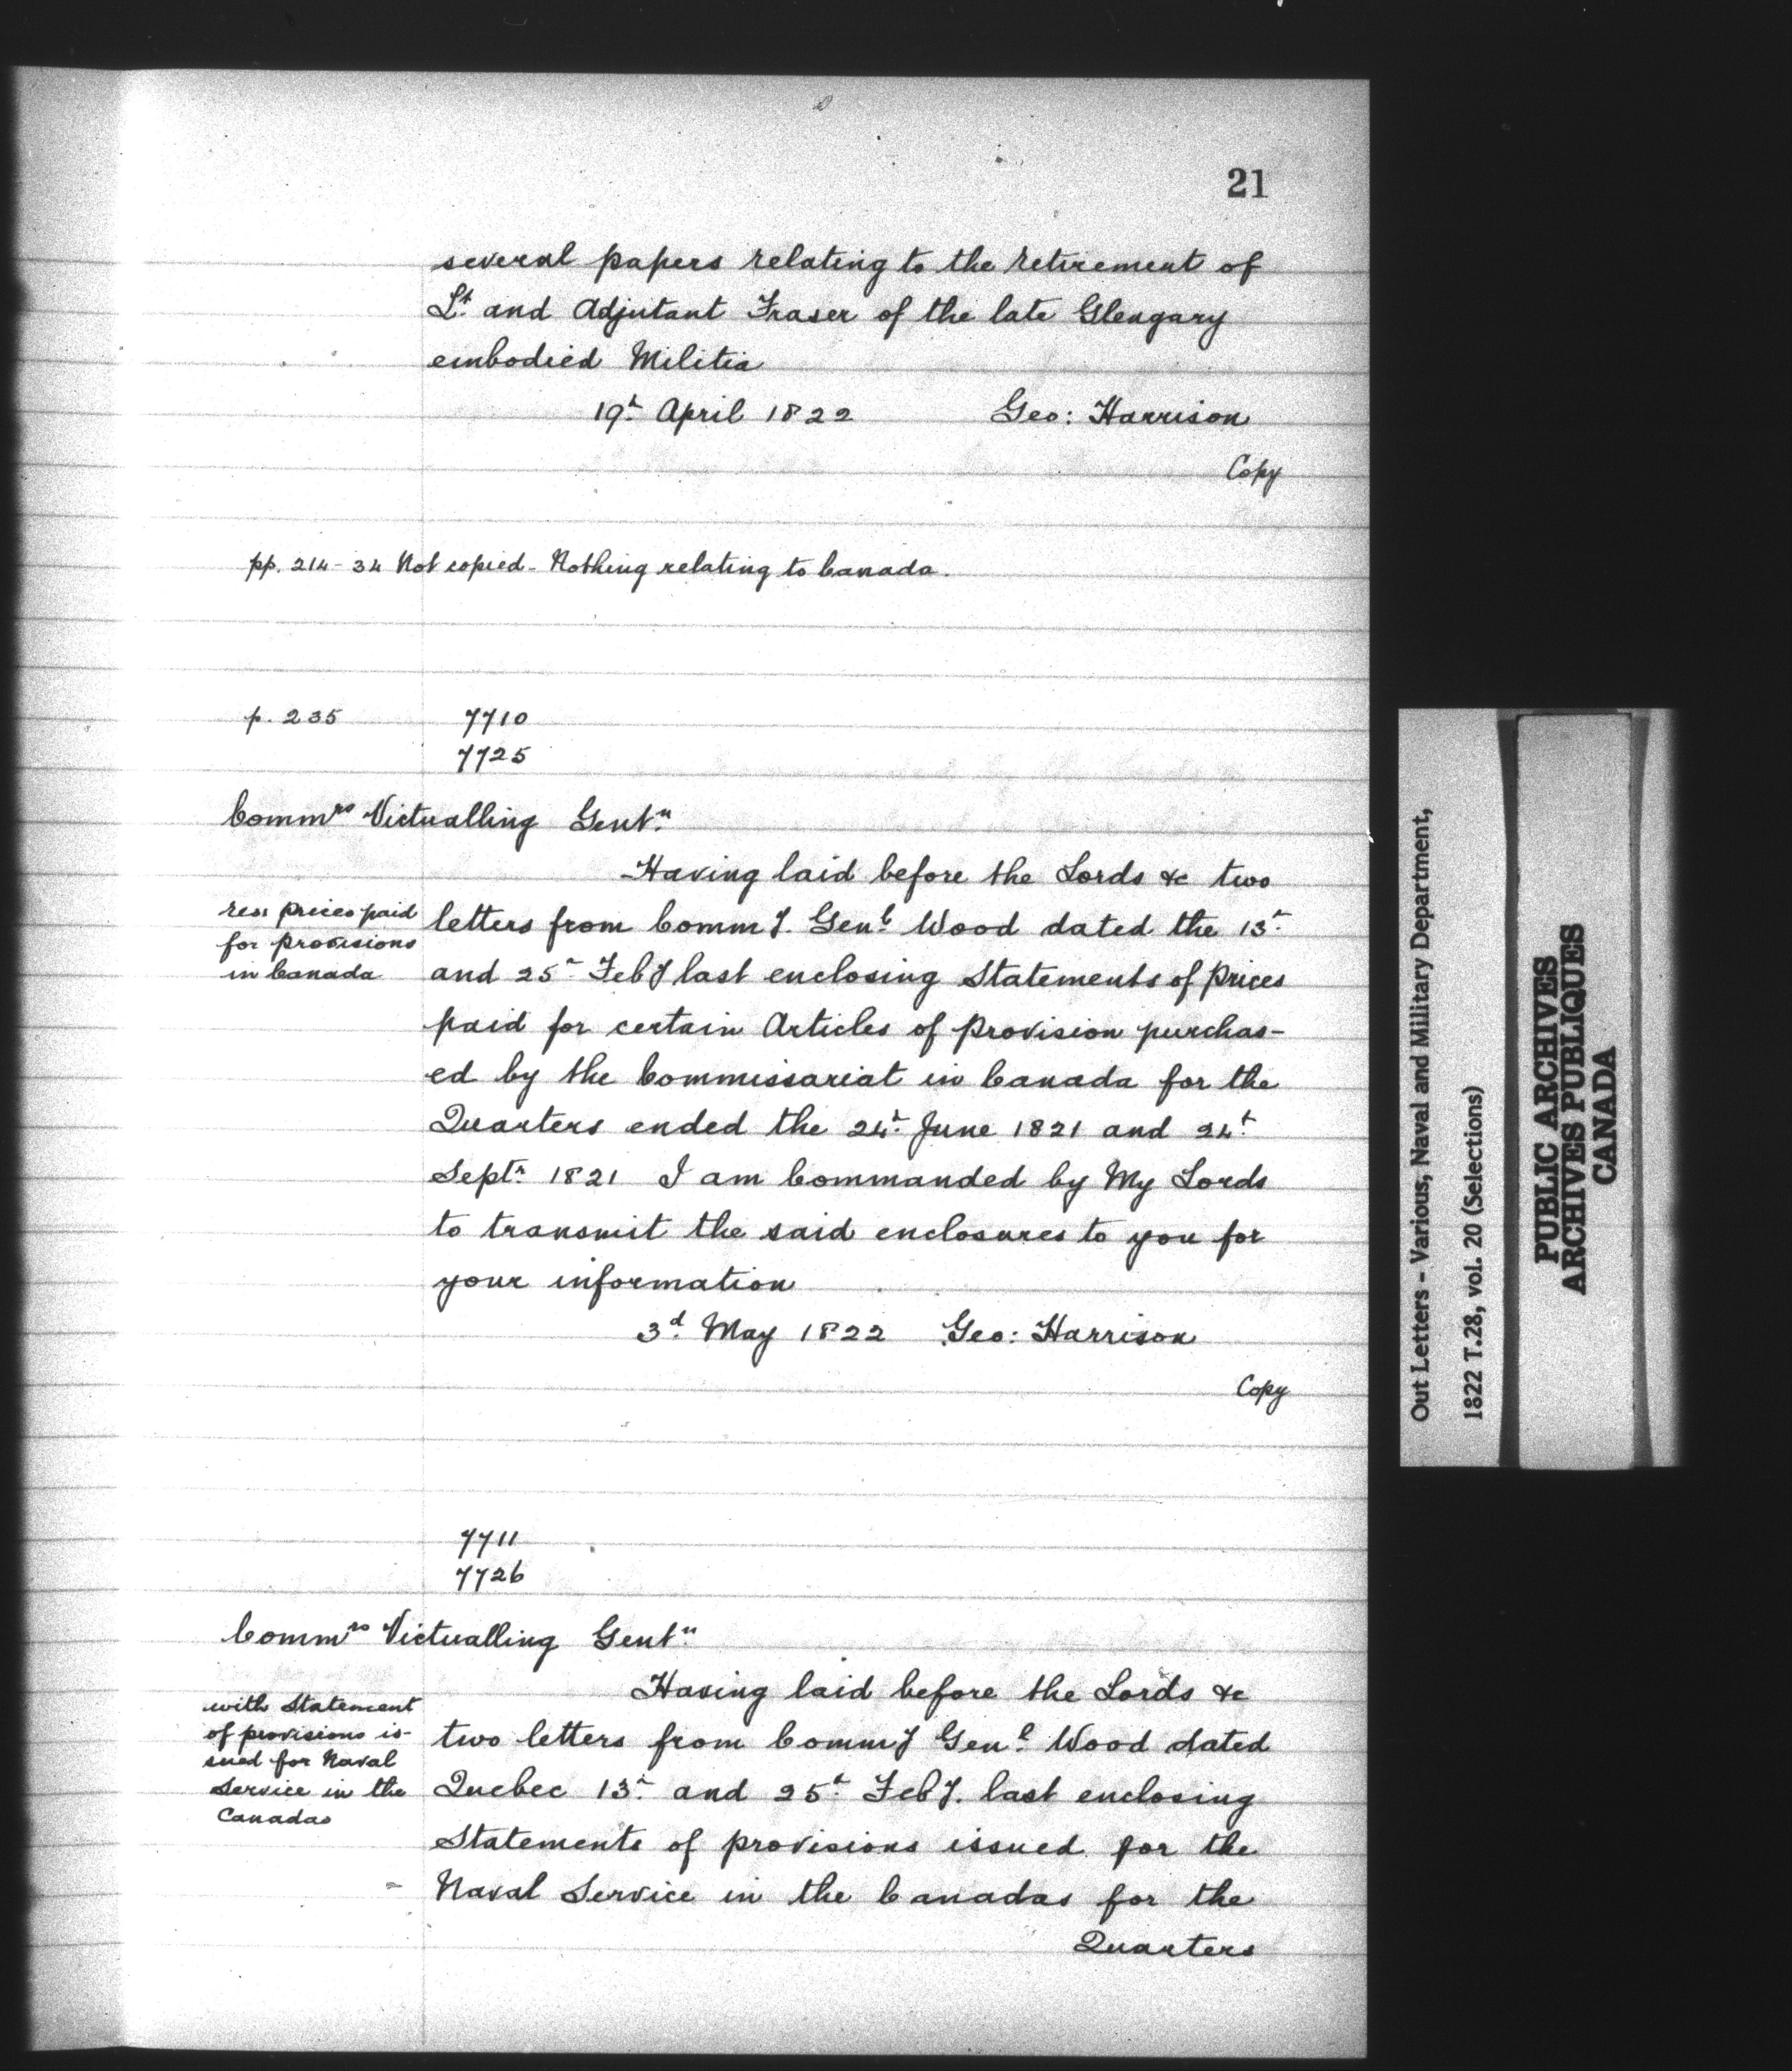 21
several papers relating to the retirement of
Lt. and Adjutant Fraser of the late Glengary
embodied Militia
19th April 1822 Geo: Harrison
Copy
pp. 214-34 Not copied - Nothing relating to Canada.
p. 235 7710
7725
Commrs Victualling Gentn
Having laid before the Lords &c two
res: prices paid
for provisions
in Canada
letters from Commy. Genl. Wood dated the 13th
and 25th Feby last enclosing Statements of prices
paid for certain Articles of provision purchas-
ed by the Commissariat in Canada for the
Quarters ended the 24th June 1821 and 24th
Septr 1821 I am Commanded by My Lords
to transmit the said enclosures to you for
your information
3d. May 1822 Geo: Harrison
Copy
7711
7726
Commrs Victualling Gentn
Having laid before the Lords &c
with Statement
of provisions is-
sued for Naval
Service in the
Canadas
two letters from Commy Genl. Wood dated
Quebec 13th and 25th Feby. last enclosing
Statements of provisions issued for the
Naval Service in the Canadas for the
Quarters
Out Letters - Various, Naval and Military Department,
1822 T.28, vol. 20 (Selections)
PUBLIC ARCHIVES
ARCHIVES PUBLIQUES
CANADA